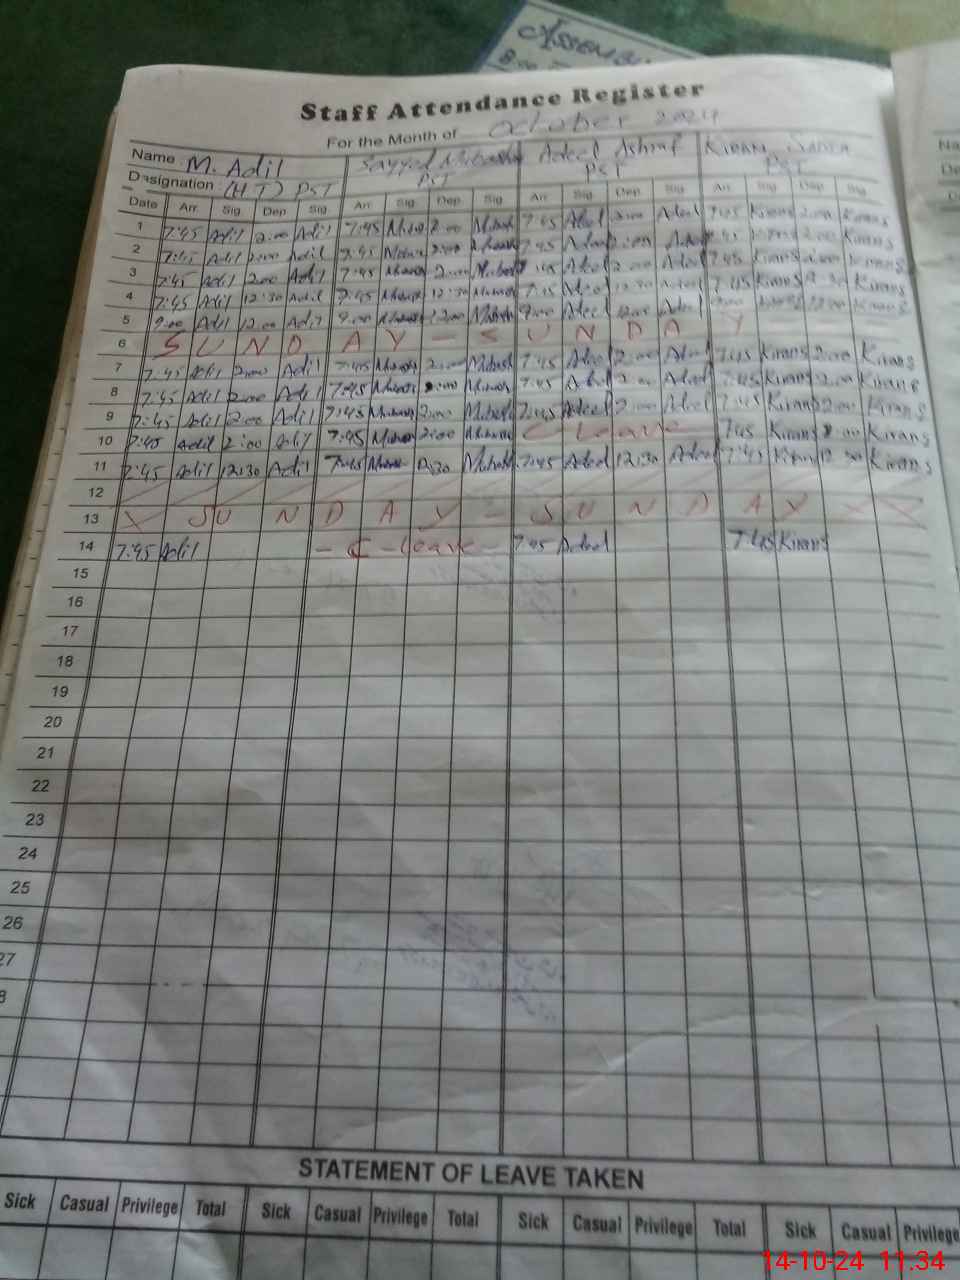 ASSEMBL
8:00
Staff Attendance Register
For the Month of October 2024
Name : M. Adil Sayyed Adeel Ashraf Kiran
Designation : (HT) PST PST PST PST
Date Arr. Sig. Dep. Sig. Arr. Sig. Dep. Sig. Arr. Sig. Dep. Sig. Arr. Sig. Dep. Sig.
1 7:45 Adil 2:00 Adil 7:45 2:00 7:45 Adeel 2:00 Adeel 7:45 Kirans 2:00 Kirans
2 7:45 Adil 2:00 Adil 7:45 2:00 7:45 Adeel 2:00 Adeel 7:45 Kirans 2:00 Kirans
3 7:45 Adil 2:00 Adil 7:45 2:00 7:45 Adeel 2:00 Adeel 7:45 Kirans 2:00 Kirans
4 7:45 Adil 12:30 Adil 7:45 12:30 7:45 Adeel 12:30 Adeel 7:45 Kirans 12:30 Kirans
5 9:00 Adil 12:00 Adil 9:00 12:00 9:00 Adeel 12:00 Adeel 9:00 12:00 Kirans
6 S U N D A Y - S U N D A Y
7 7:45 Adil 2:00 Adil 7:45 2:00 7:45 Adeel 2:00 Adeel 7:45 Kirans 2:00 Kirans
8 7:45 Adil 2:00 Adil 7:45 2:00 7:45 Adeel 2:00 Adeel 7:45 Kirans 2:00 Kirans
9 7:45 Adil 2:00 Adil 7:45 2:00 7:45 Adeel 2:00 Adeel 7:45 Kirans 2:00 Kirans
10 7:45 Adil 2:00 Adil 7:45 2:00 C Leave 7:45 Kirans 2:00 Kirans
11 7:45 Adil 12:30 Adil 7:45 12:30 7:45 Adeel 12:30 Adeel 7:45 Kirans 12:30 Kirans
12
13 X S U N D A Y - S U N D A Y X X
14 7:45 Adil - C - Leave - 7:45 Adeel 7:45 Kirans
15
16
17
18
19
20
21
22
23
24
25
26
27
8
STATEMENT OF LEAVE TAKEN
Sick Casual Privilege Total Sick Casual Privilege Total Sick Casual Privilege Total Sick Casual Privilege
14-10-24 11:34